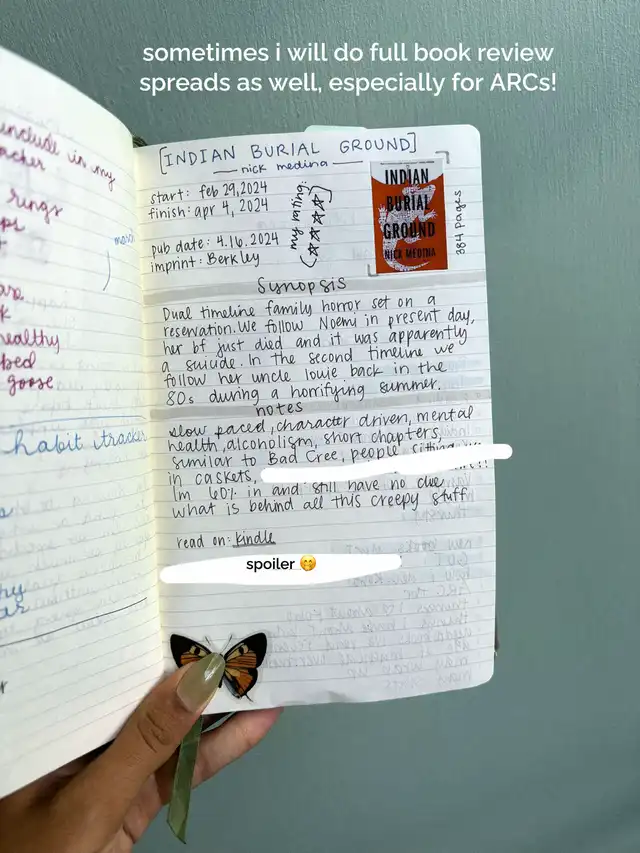 sometimes i will do full book review
spreads as well, especially for ARCs!
[INDIAN BURIAL GROUND]
nick medina
start: feb 29, 2024
finish: apr 4, 2024
pub date: 4.16.2024
imprint: Berkley
my rating:
(☆☆☆☆)
INDIAN
BURIAL
GROUND
NICK MEDINA
384 Pages
Synopsis
Dual timeline family horror set on a
reservation. We follow Noemi in present day,
her bf just died and it was apparently
a suicide. In the second timeline we
follow her uncle louie back in the
80s during a horrifying summer.
notes
slow paced, character driven, mental
health, alcoholism, short chapters,
similar to Bad Cree, people sitting up
in caskets,
Im 60% in and still have no clue
what is behind all this creepy stuff
read on: kindle
spoiler 🤭
include in my
rings
healthy
bed
goose
habit tracker